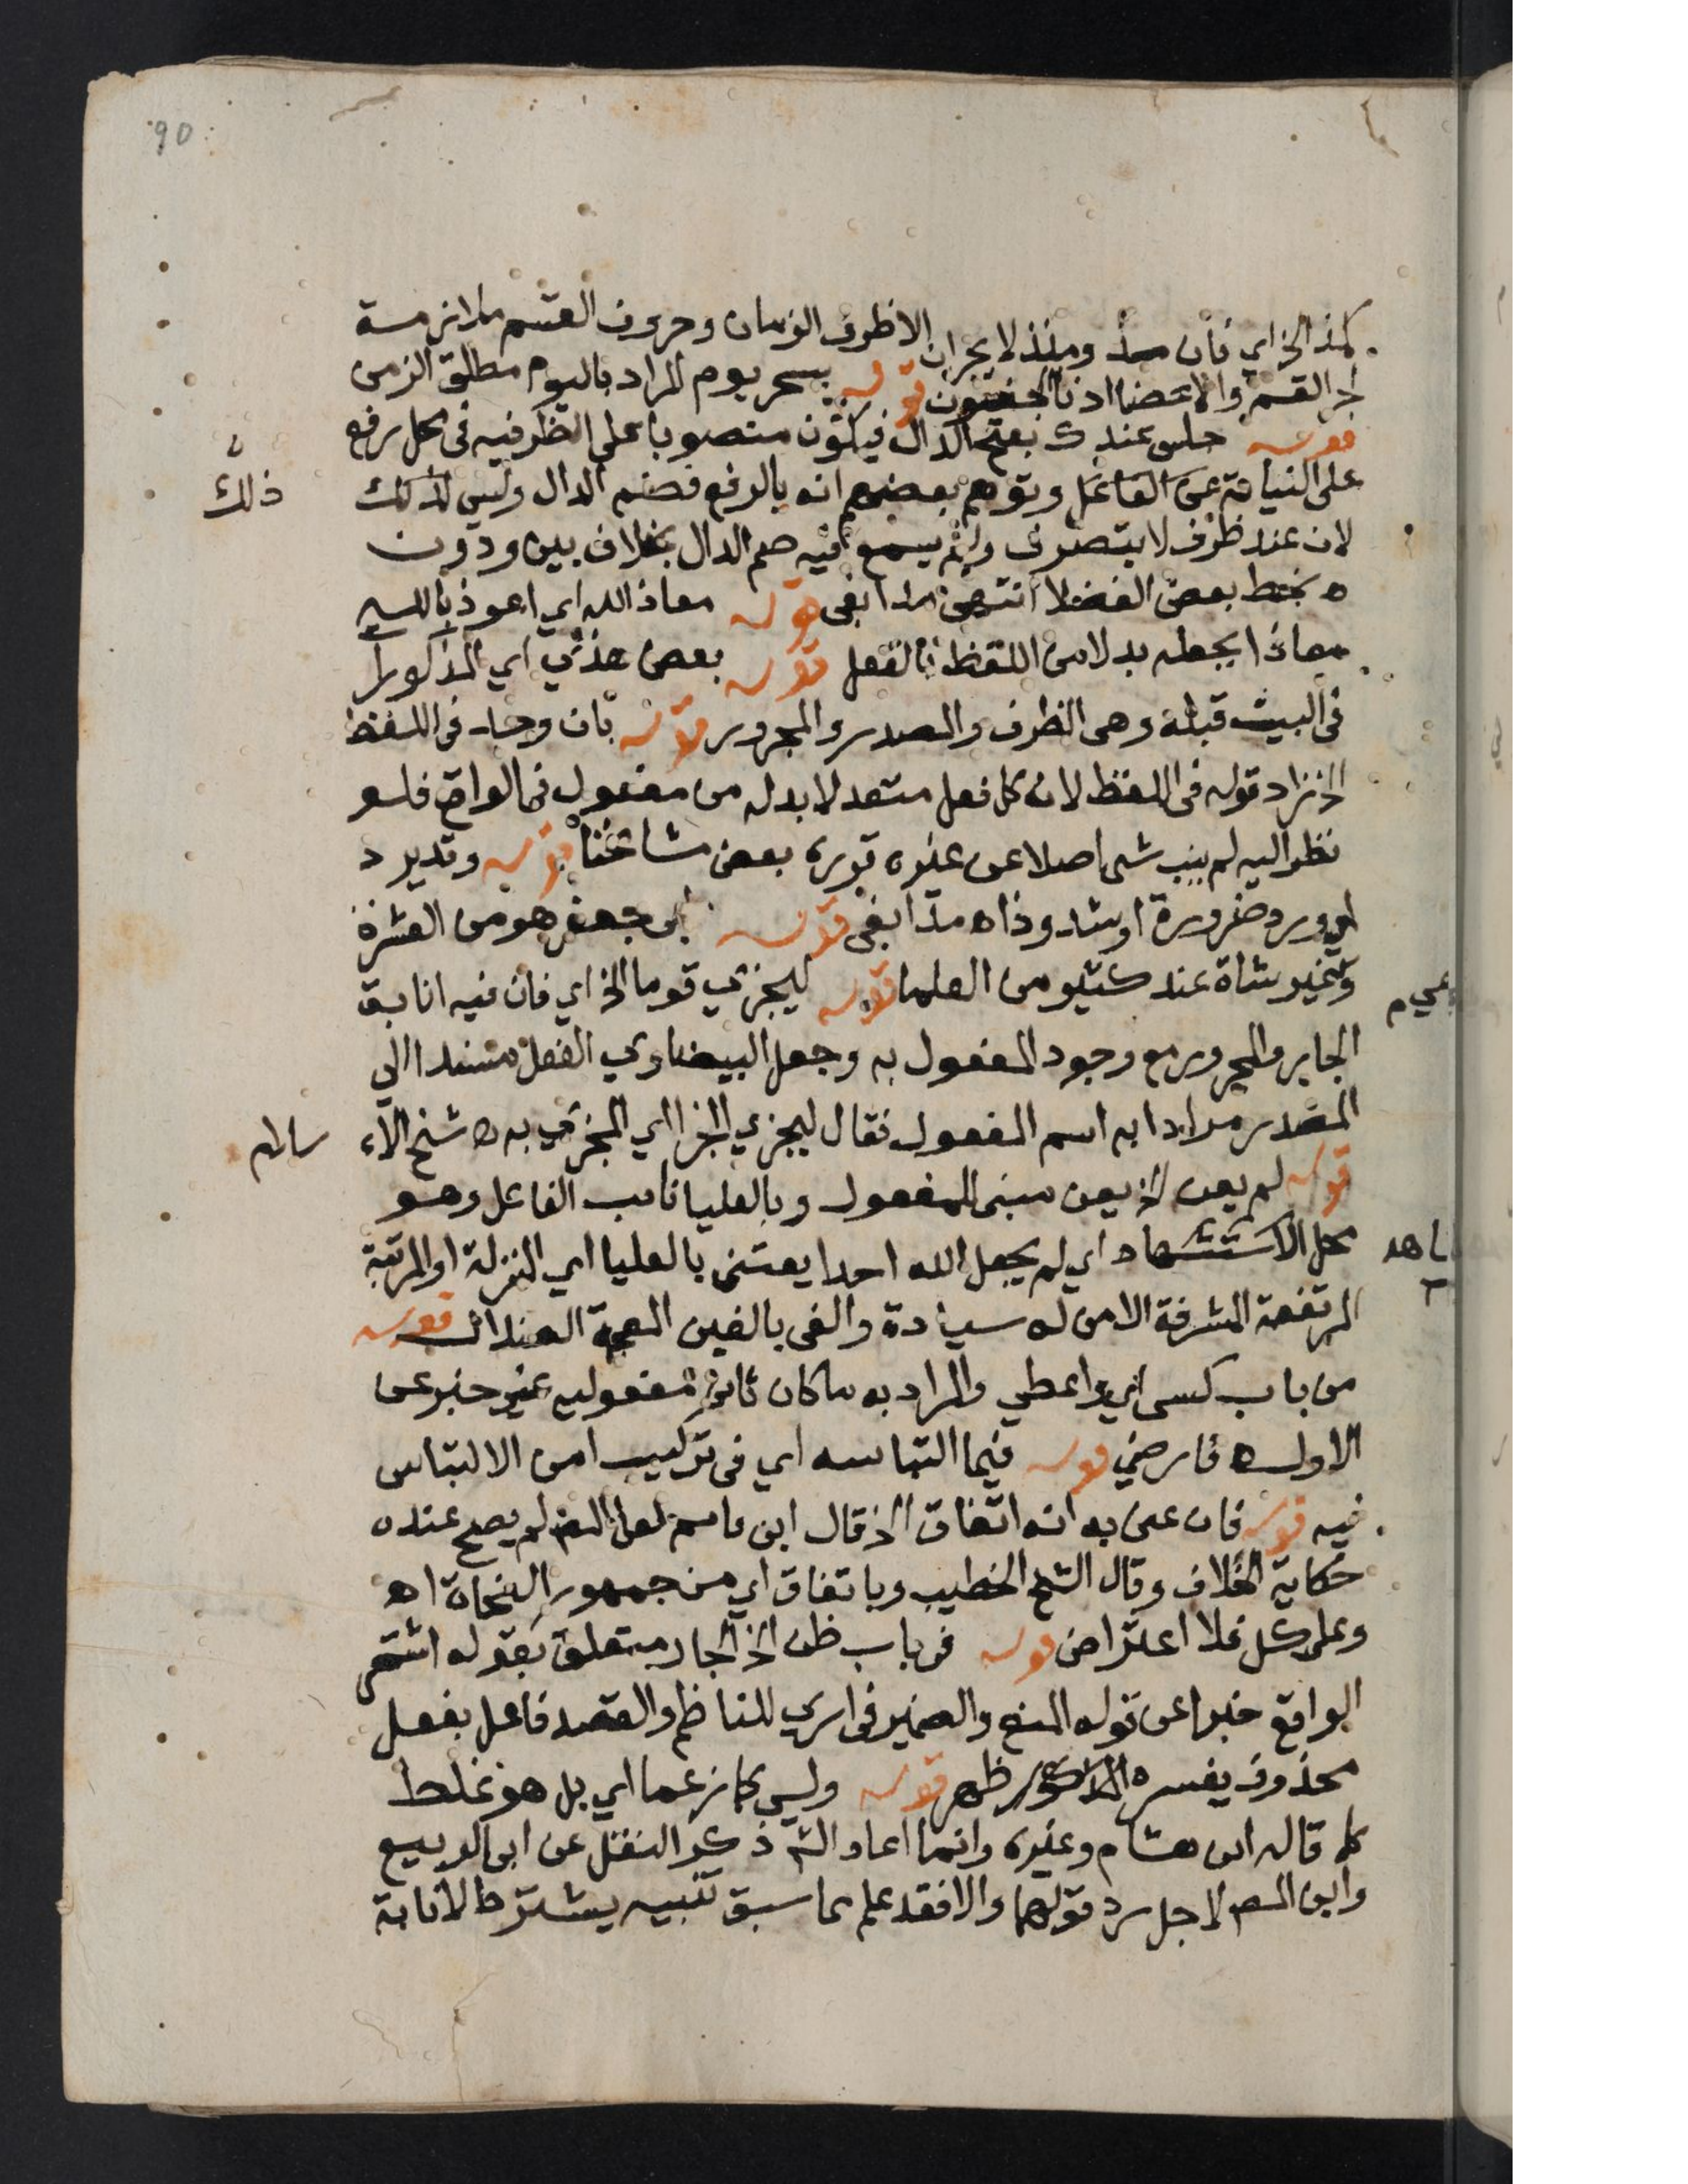 90
كمذ الخ اي فان مذ ومنذ لا يجران الا ظروف الزمان وحروف القسم ملازمة
لجر القسم والاعضا اذنا لجفون قوله بسحر يوم المراد باليوم مطلق الزمن
قوله جلس عندك بفتح الدال فيكون منصوبا على الظرفيه في محل رفع
على النيابة عن الفاعل وتوهم بعضهم انه بالرفع فضم الدال وليس كذلك
ذلك
لان عند ظرف لا يتصرف ولم يسمع فيه ضم الدال بخلاف بين ودون
ه بخط بعض الفضلا انتهى مدابغى قوله معاذ الله اي اعوذ بالله
معاذا بجعله بدلا من اللفظ بالفعل قوله بعض هذي اي المذكورات
في البيت قبله وهي الظرف والمصدر والمجرور قوله بان وجد في اللفظ
الخ زاد قوله في اللفظ لان كل فعل متعد لا بد له من مفعول في الواقع فلو
نظر اليه لم ينب شي اصلا عن غيره قرره بعض مشايخنا قوله وقد يرد
اي ورد ضرورة او شذوذا ه مدابغى قوله ابى جعفر هو من العشرة
وغير شاذة عند كثير من العلما قوله ليجزي قوما الخ اي فان فيه انابة
الجار والمجرور مع وجود المفعول به وجعل البيضاوي الفعل مسندا الي
المصدر مرادا به اسم المفعول فقال ليجزي الجزا اي المجزي به ه شيخ الا
سلام
قوله لم يعن الخ يعن مبنى للمفعول وبالعليا نائب الفاعل وهو
محل الاستشهاد اي لم يجعل الله احدا يعتنى بالعليا اي المنزلة او المرتبة
المرتفعة المشرفة الا من له سيادة والغى بالغين المعجمة الضلال قوله
من باب كسى اي واعطي والمراد به ما كان ثاني مفعوليه غير خبر عن
الاول ه فارضي قوله فيما التباسه اي في تركيب امن الالتباس
فيه قوله فان عنى به انه اتفاق الخ قال ابن قاسم لعل المص لم يصح عنده
حكاية الخلاف وقال الشيخ الخطيب وباتفاق اي من جمهور النحاة اه
وعلى كل فلا اعتراض قوله في باب ظن الخ الجار متعلق بقوله اشتهر
الواقع خبرا عن قوله المنع والضمير في ارى للناظم والقصد فاعل بفعل
محذوف يفسره المذكور ظهر قوله وليس كما زعما اي بل هو غلط
كما قاله ابن هشام وغيره وانما اعاد الش ذكر النقل عن ابى الربيع
وابن المص لاجل رد قولهما والا فقد علم مما سبق تنبيه يشترط لانابة